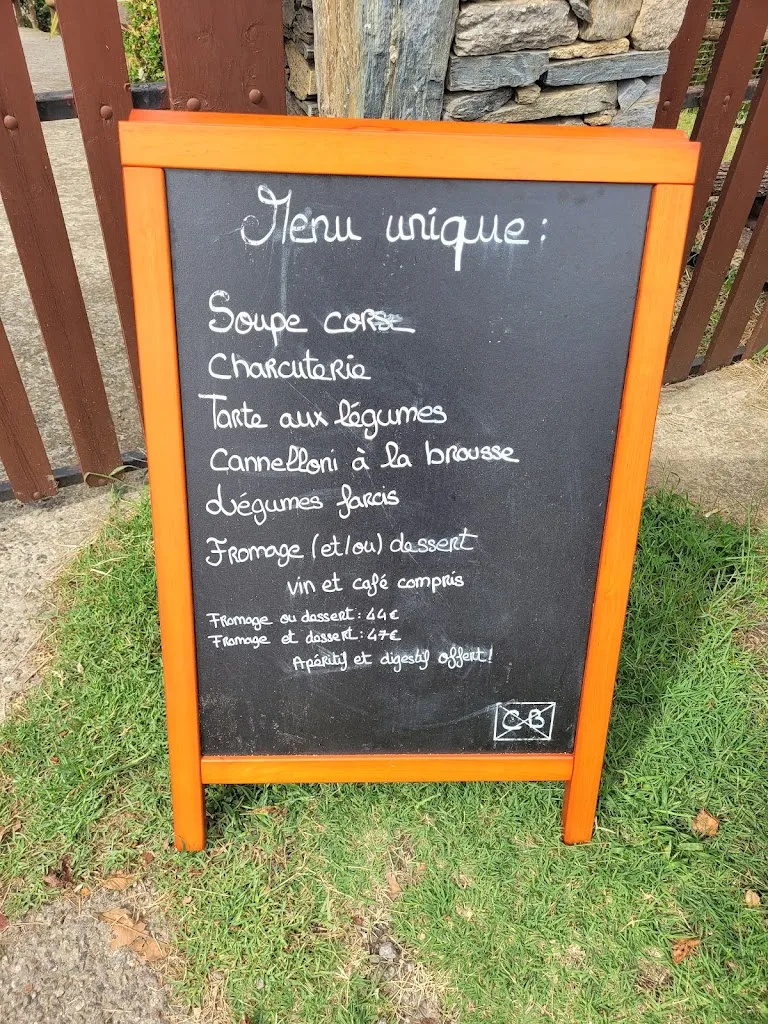 Menu unique :
Soupe corse
Charcuterie
Tarte aux légumes
Cannelloni à la brousse
Légumes farcis
Fromage (et/ou) dessert
vin et café compris
Fromage ou dessert : 44€
Fromage et dessert : 47€
Apéritif et digestif offert !
CB